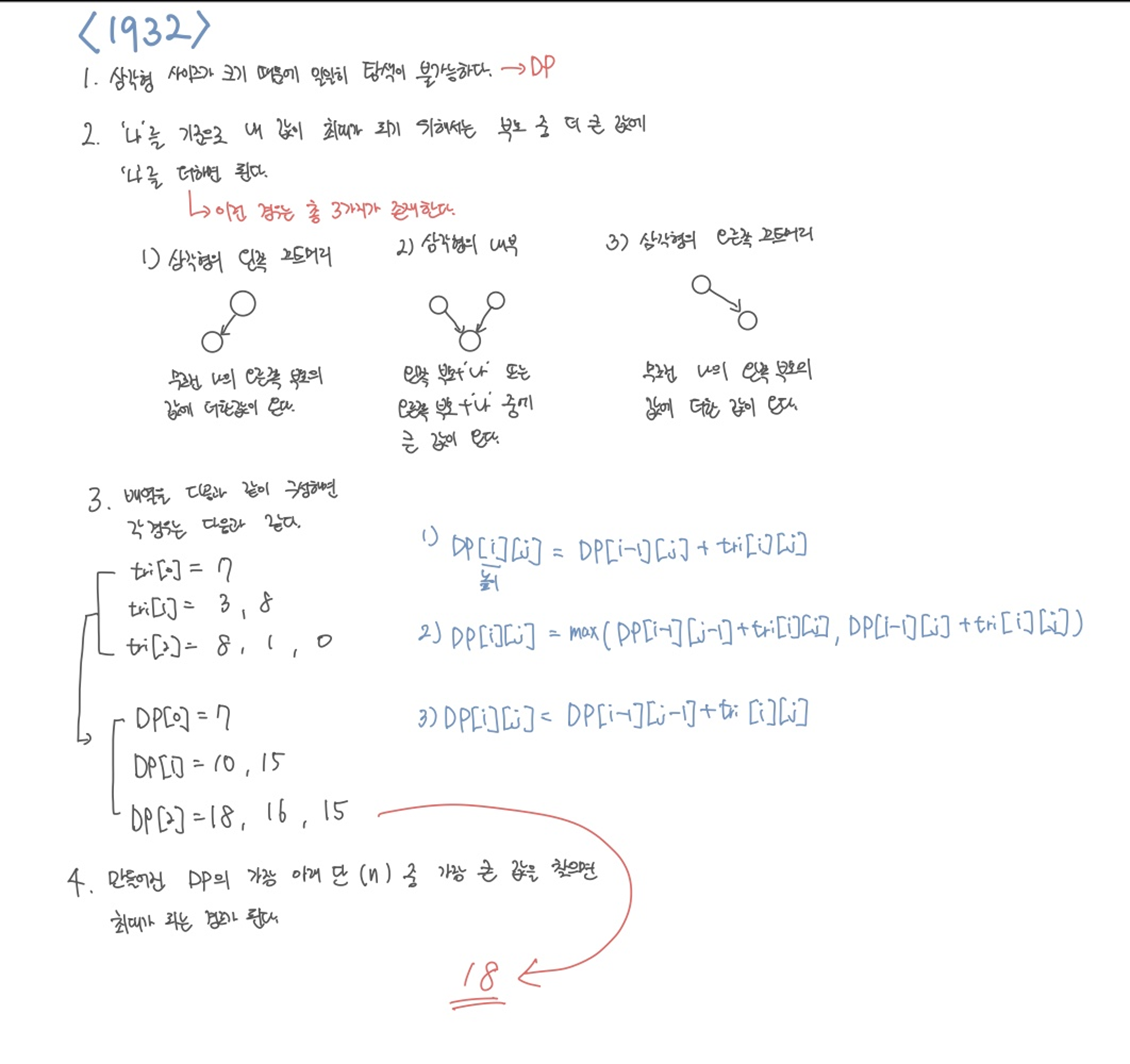 <1932>
1. 삼각형 사이즈가 크기 때문에 일일히 탐색이 불가능하다. →DP
2. '나'를 기준으로 내 값이 최대가 되기 위해서는 부모 중 더 큰 값에
'나'를 더하면 된다.
↳이런 경우는 총 3가지가 존재한다.
1) 삼각형의 왼쪽 끄트머리
2) 삼각형의 내부
3) 삼각형의 오른쪽 끄트머리
무조건 나의 오른쪽 부모의
값에 더한값이 온다.
왼쪽 부모+'나' 또는
오른쪽 부모+'나' 중에
큰 값이 온다.
무조건 나의 왼쪽 부모의
값에 더한 값이 온다.
3. 배열을 다음과 같이 구성하면
각 경우는 다음과 같다.
tri[0] = 7
tri[1] = 3, 8
tri[2] = 8, 1, 0
DP[0] = 7
DP[1] = 10, 15
DP[2] = 18, 16, 15
1) DP[i][j] = DP[i-1][j] + tri[i][j]
높이
2) DP[i][j] = max(DP[i-1][j-1]+tri[i][j], DP[i-1][j]+tri[i][j])
3) DP[i][j] = DP[i-1][j-1]+tri[i][j]
4. 만들어진 DP의 가장 아래 단 (n) 중 가장 큰 값을 찾으면
최대가 되는 경로가 된다.
18